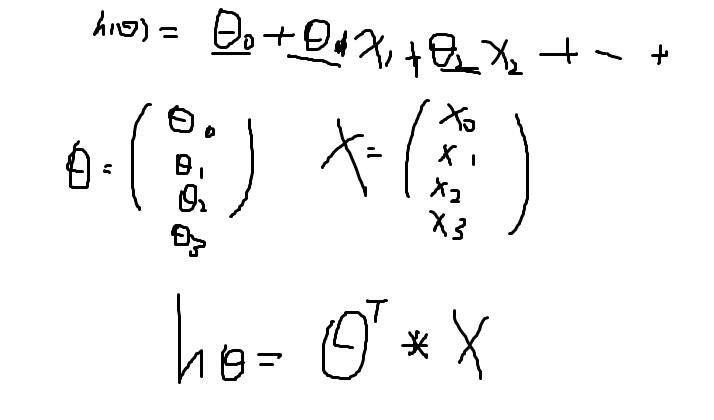 h(θ) = θ₀ + θ₁ x₁ + θ₂ x₂ + -- +
θ = ( θ₀ θ₁ θ₂ θ₃ ) X = ( x₀ x₁ x₂ x₃ )
hθ = θᵀ * X